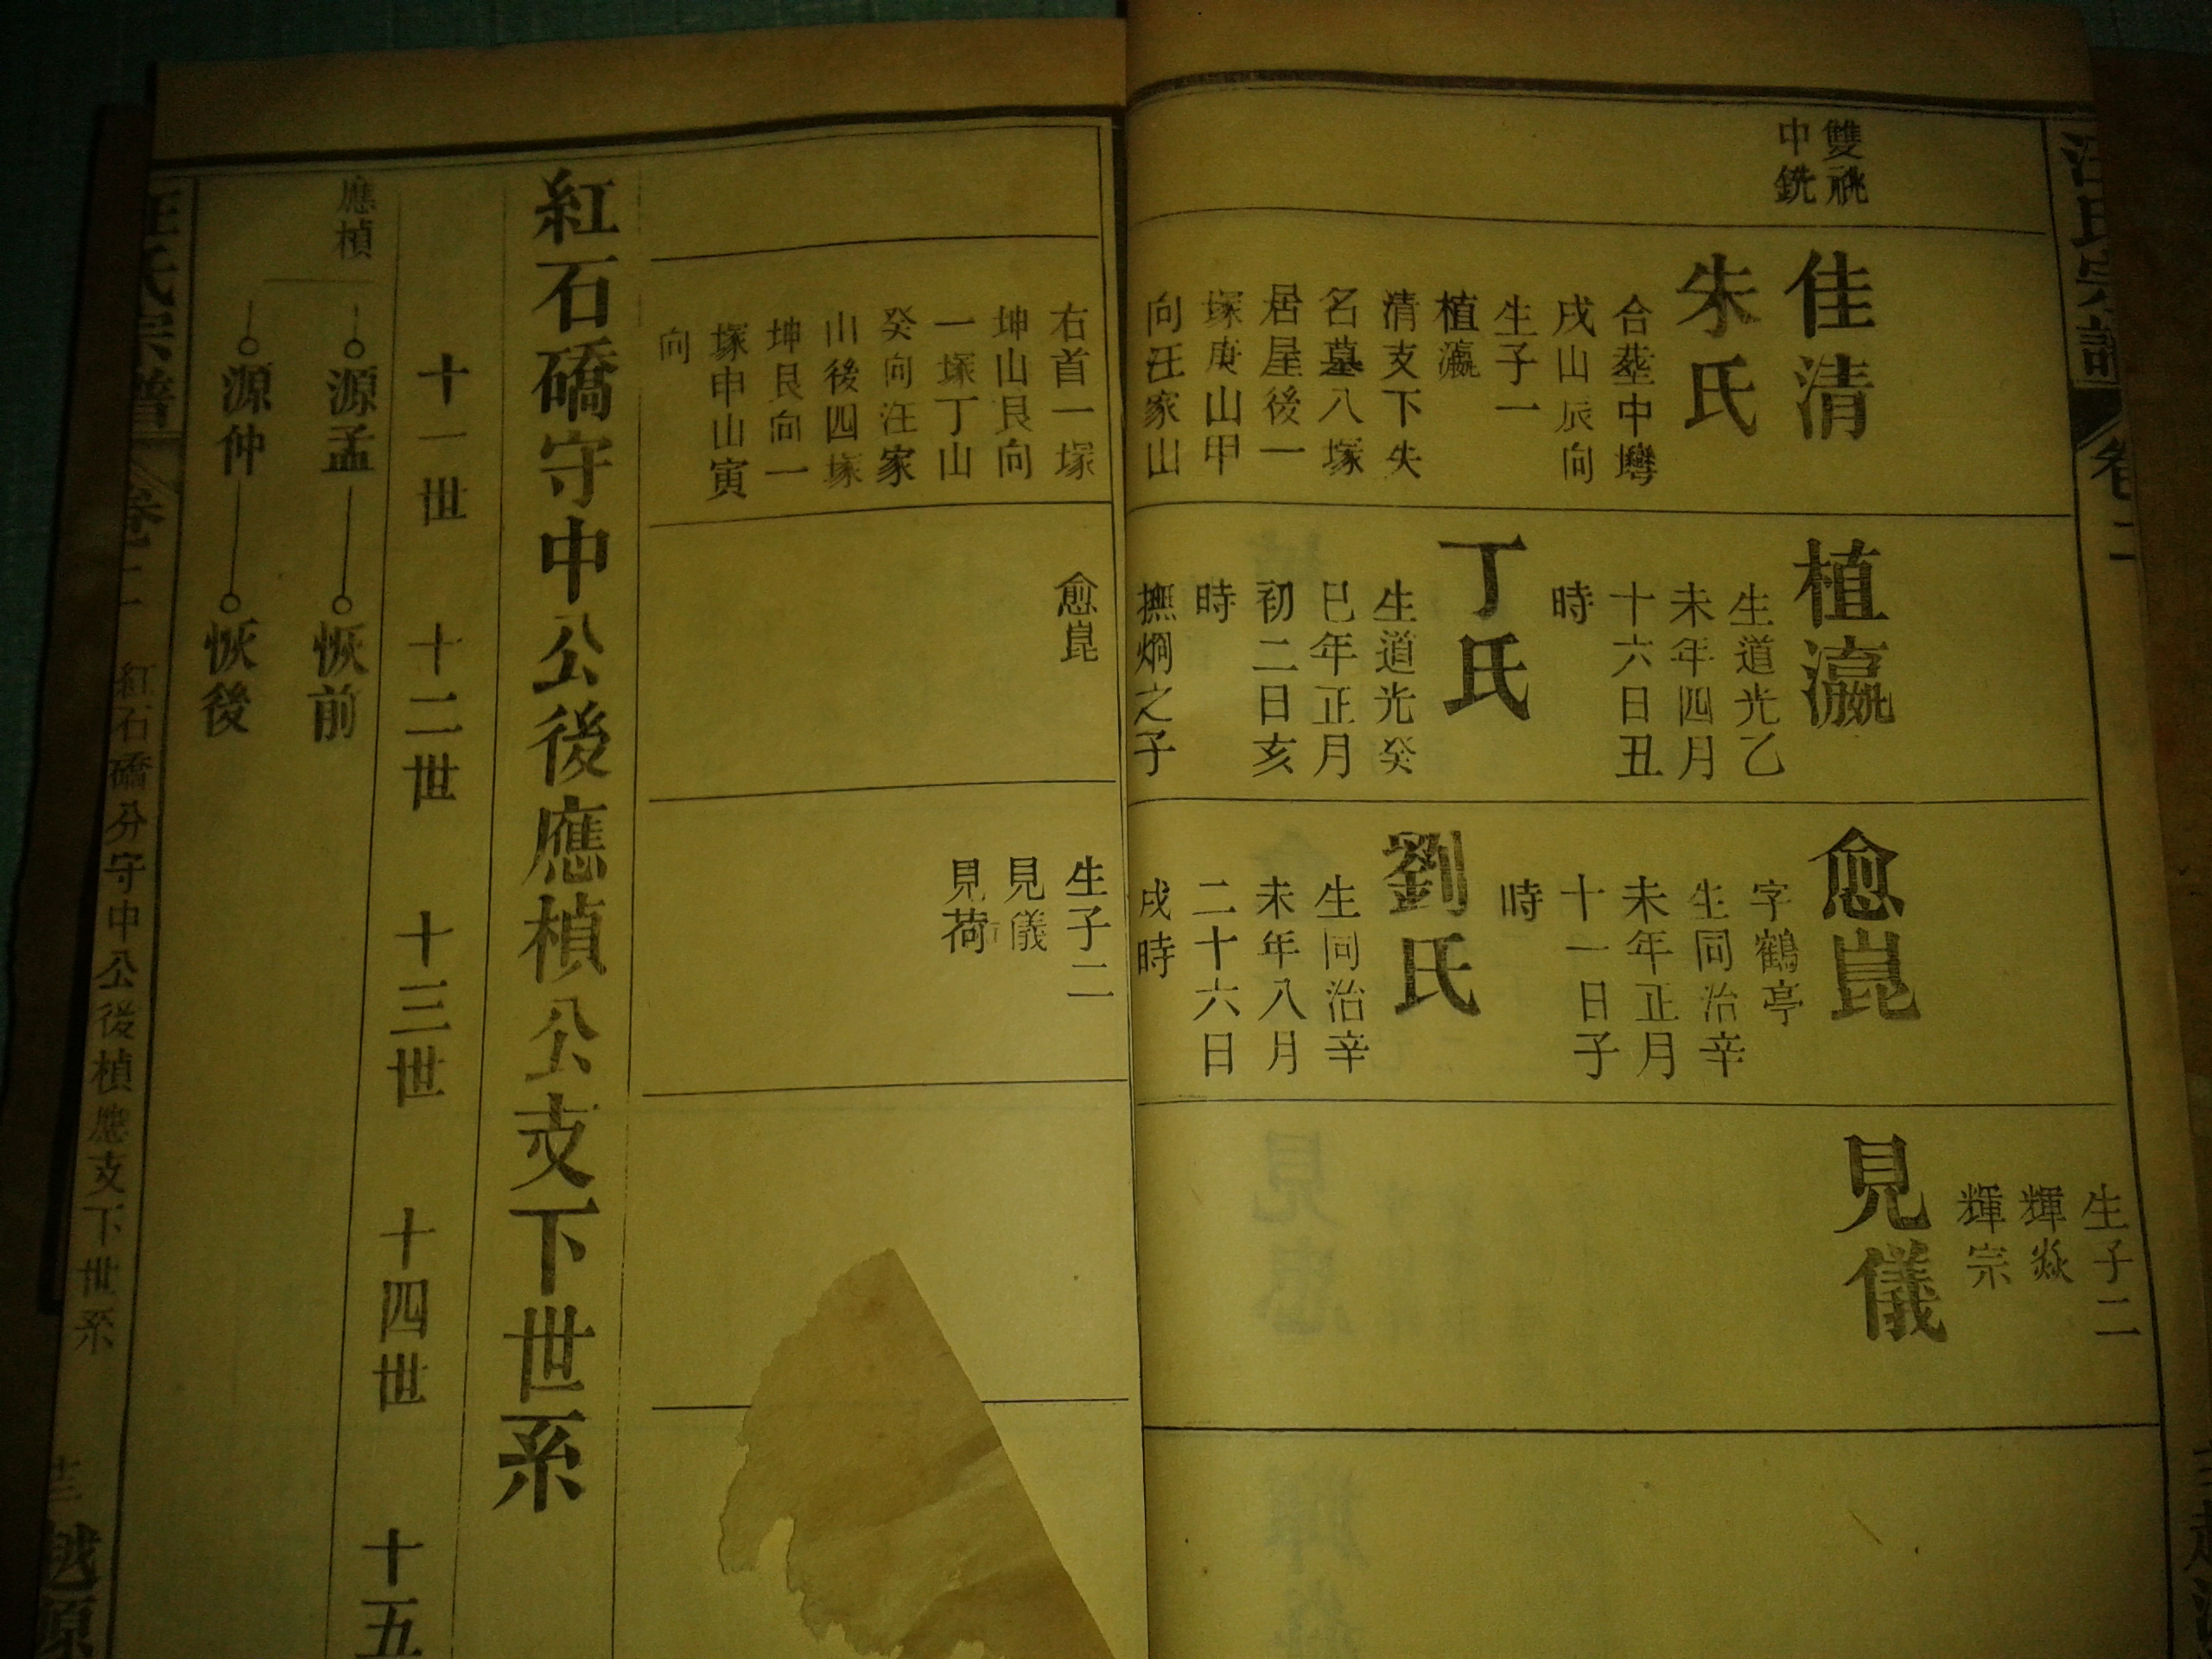 雙祧
中銑
佳清
朱氏
合塟中塆
戌山辰向
生子一
植瀛
清支下失
名墓八塚
居屋後一
塚庚山甲
向汪家山
植瀛
生道光乙
未年四月
十六日丑
時
丁氏
生道光癸
巳年正月
初二日亥
時
撫炯之子
愈崑
字鶴亭
生同治辛
未年正月
十一日子
時
劉氏
生同治辛
未年八月
二十六日
戌時
生子二
輝焱
輝宗
見儀
右首一塚
坤山艮向
一塚丁山
癸向汪家
山後四塚
坤艮向一
塚申山寅
向
愈崑
生子二
見儀
見荷
紅石磽守中公後應楨公支下世系
十一世 十二世 十三世 十四世 十五
應楨
源孟 恢前
源仲 恢後
汪氏宗譜 卷二 紅石磽分守中公後楨應支下世系 越原